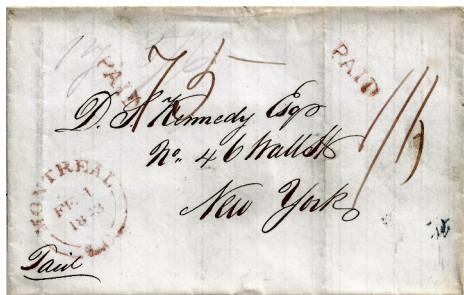 PAID
75
PAID
D. S. Kennedy Esqr
No. 46 Wall St
New York
MONTREAL
FE 1
L.C.
Paid